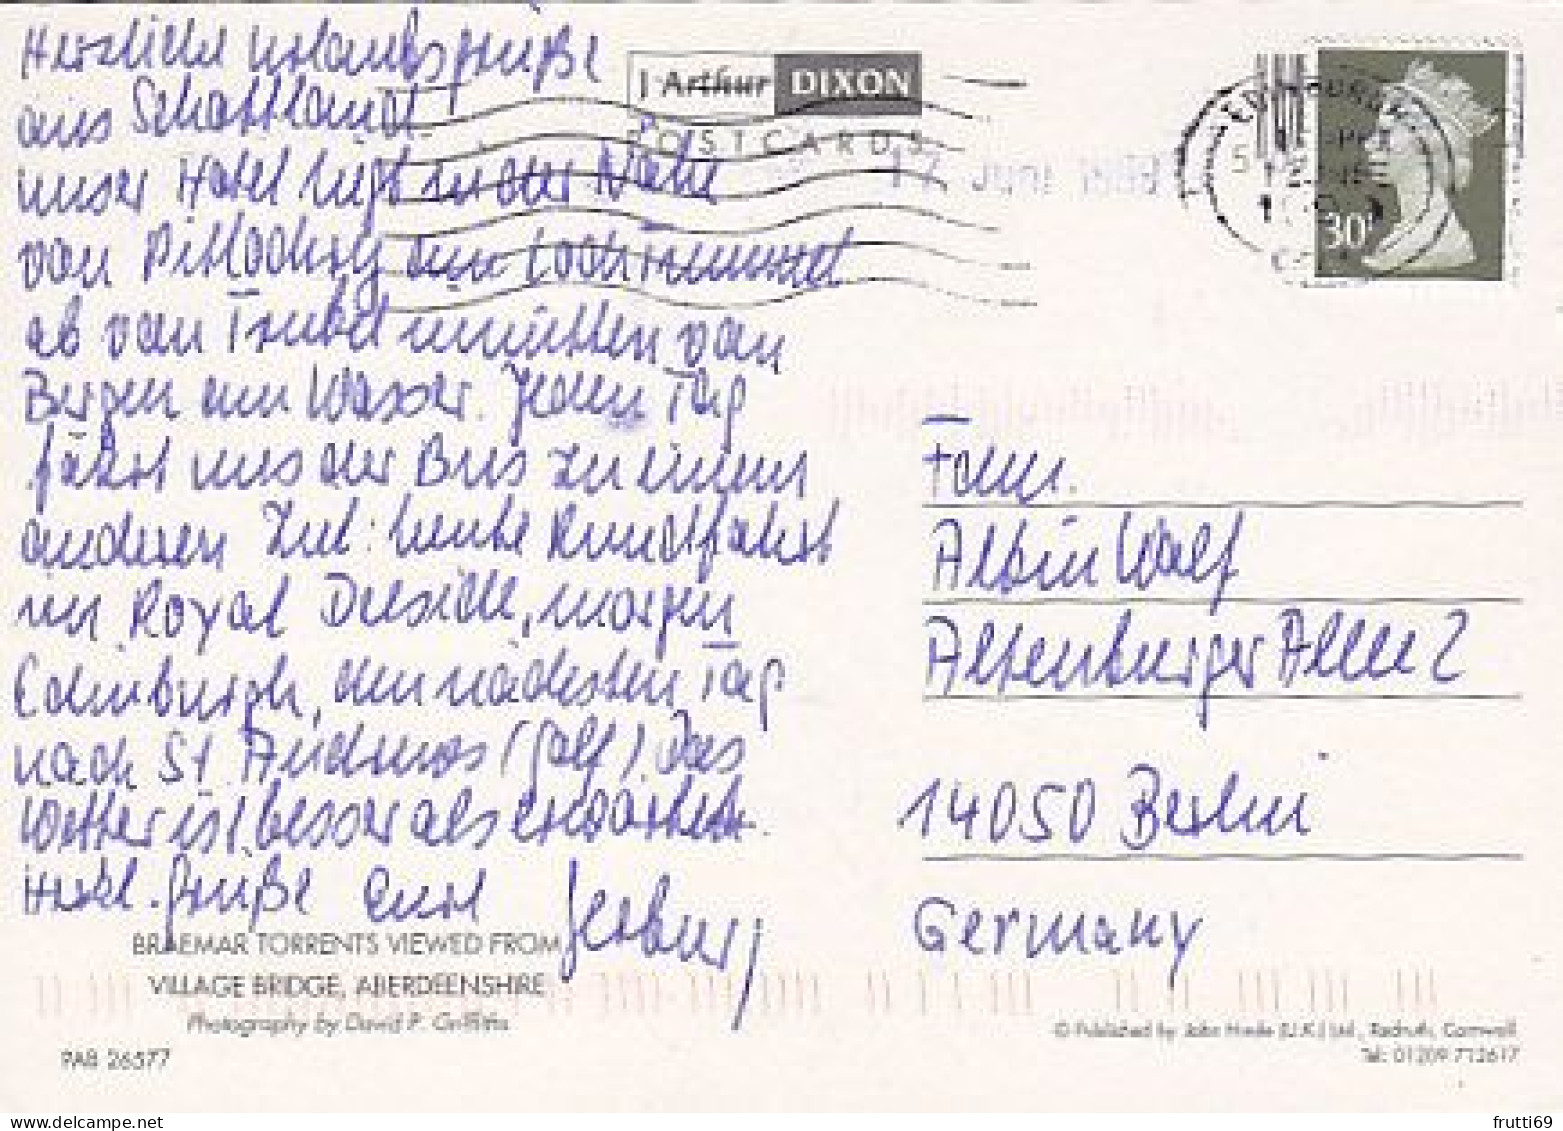 Herzliche Urlaubsgrüße
aus Schottland.
unser Hotel liegt in der Nähe
von Pitlochry am Loch Tummel
ab vom Trubel inmitten von
Bergen am Wasser. Jeden Tag
fährt uns der Bus zu einem
anderen Ziel: heute Rundfahrt
im Royal Deeside, morgen
Edinburgh, den nächsten Tag
nach St. Andrews (Golf). Das
Wetter ist besser als erwartet.
Herzl. Grüße Eure
J Arthur DIXON
POSTCARDS
17 JUN 1999
30P
Fam.
Albin Wolf
Altenburger Allee 2
14050 Berlin
Germany
BRAEMAR TORRENTS VIEWED FROM
VILLAGE BRIDGE, ABERDEENSHIRE
Photography by David P. Griffiths
PAB 26577
© Published by John Hinde (U.K.) Ltd., Redruth, Cornwall
Tel: 01209 712617
frutti69